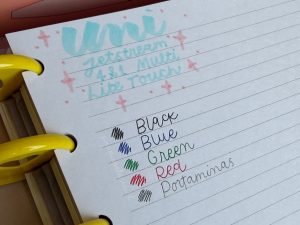 uni
Jetstream
4&1 Multi
Lite Touch
Black
Blue
Green
Red
Portaminas